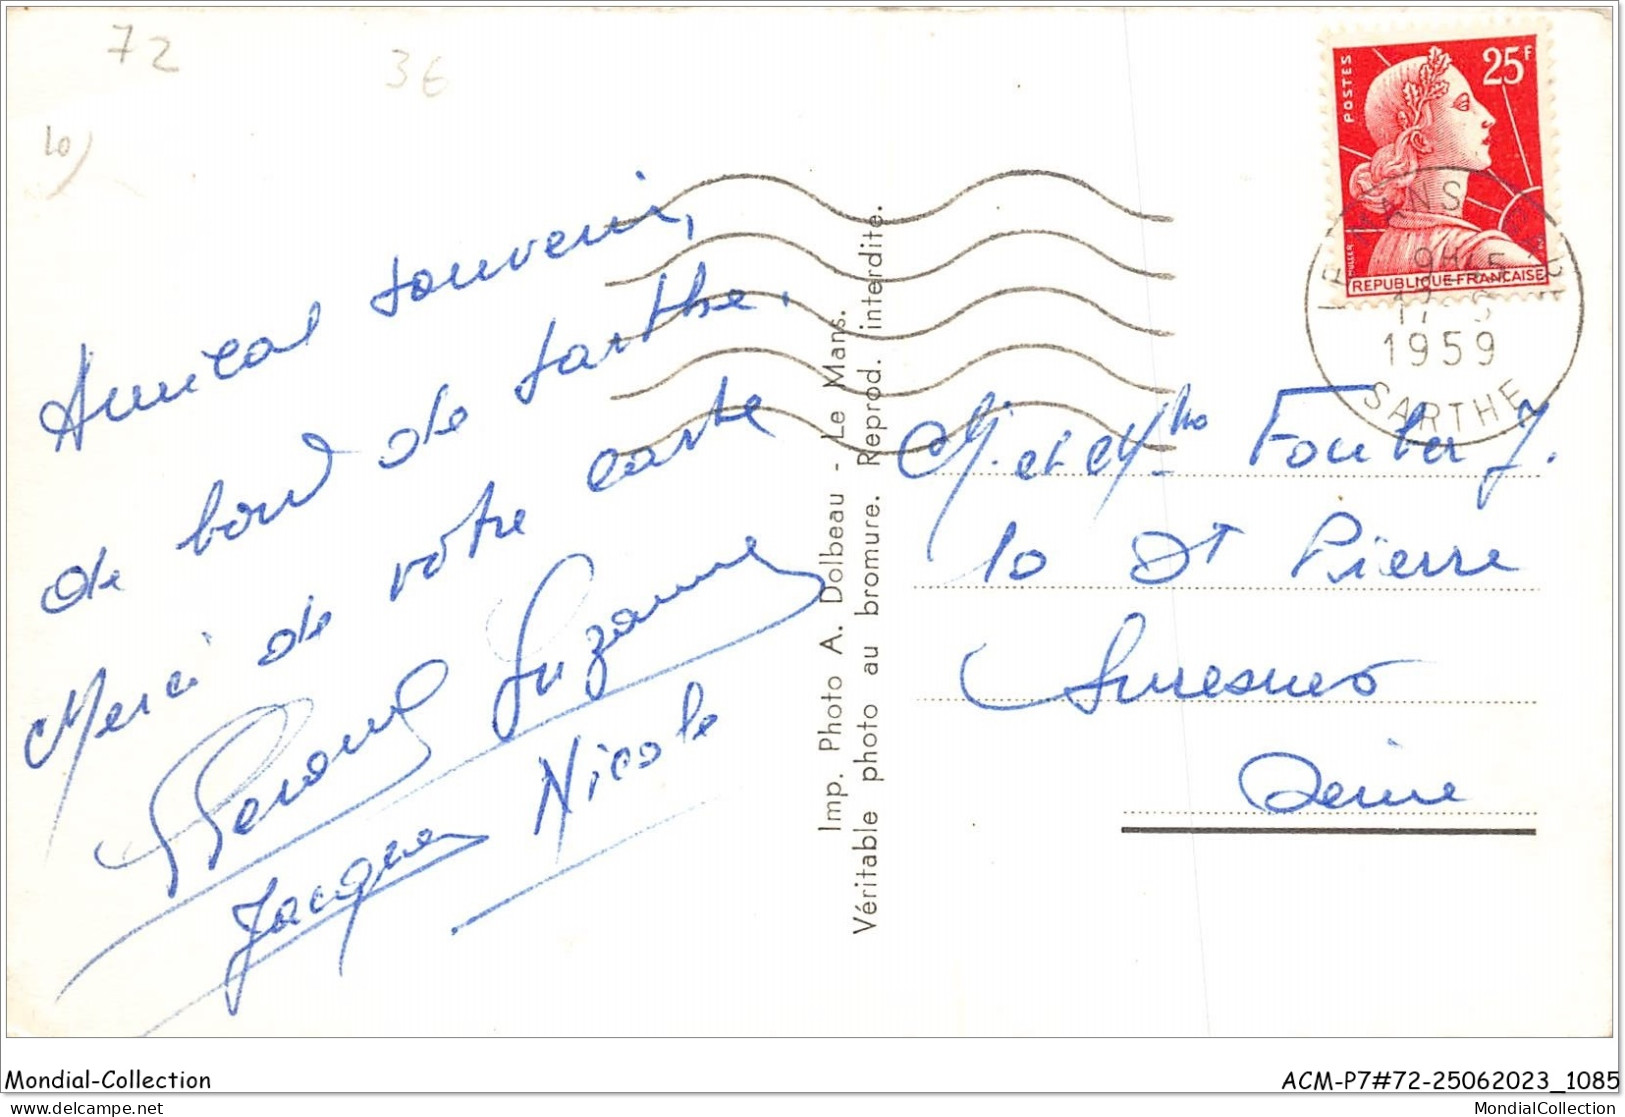 72
3€
10)
Amical souvenir,
de bord de Sarthe.
Merci de votre carte
Suzanne
Jacques Nicole
Imp. Photo A. Dolbeau - Le Mans.
Véritable photo au bromure. Reprod. interdite.
POSTES
25F
MULLER
REPUBLIQUE FRANCAISE
LE MANS
9H45
17
1959
SARTHE
M. et Mme
10 St Pierre
Suresnes
Seine
Mondial-Collection
ACM-P7#72-25062023_1085
delcampe.net
MondialCollection